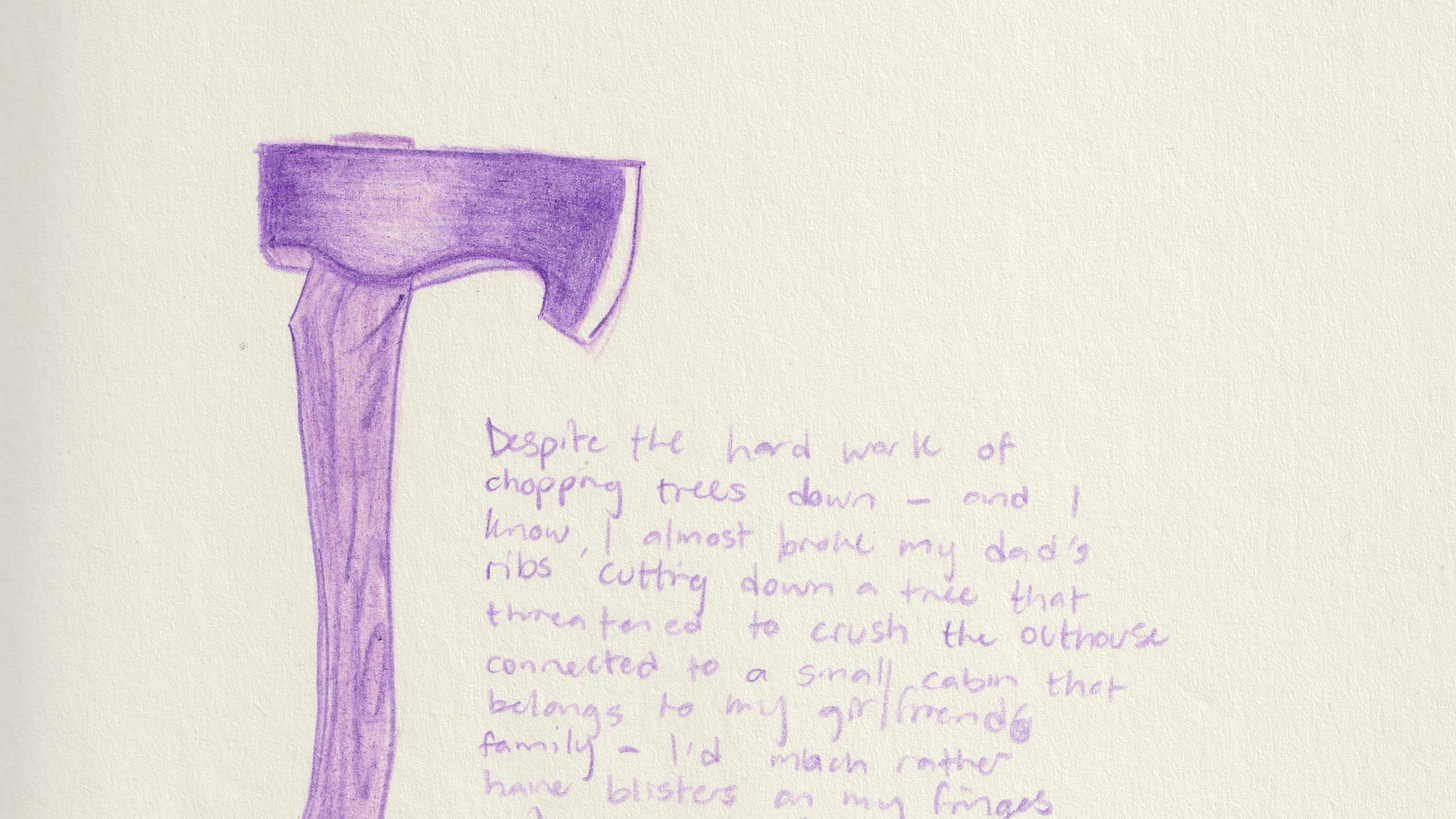 Despite the hard work of
chopping trees down – and I
know, I almost broke my dad's
ribs cutting down a tree that
threatened to crush the outhouse
connected to a small cabin that
belongs to my girlfriends
family – I'd much rather
have blisters on my finges